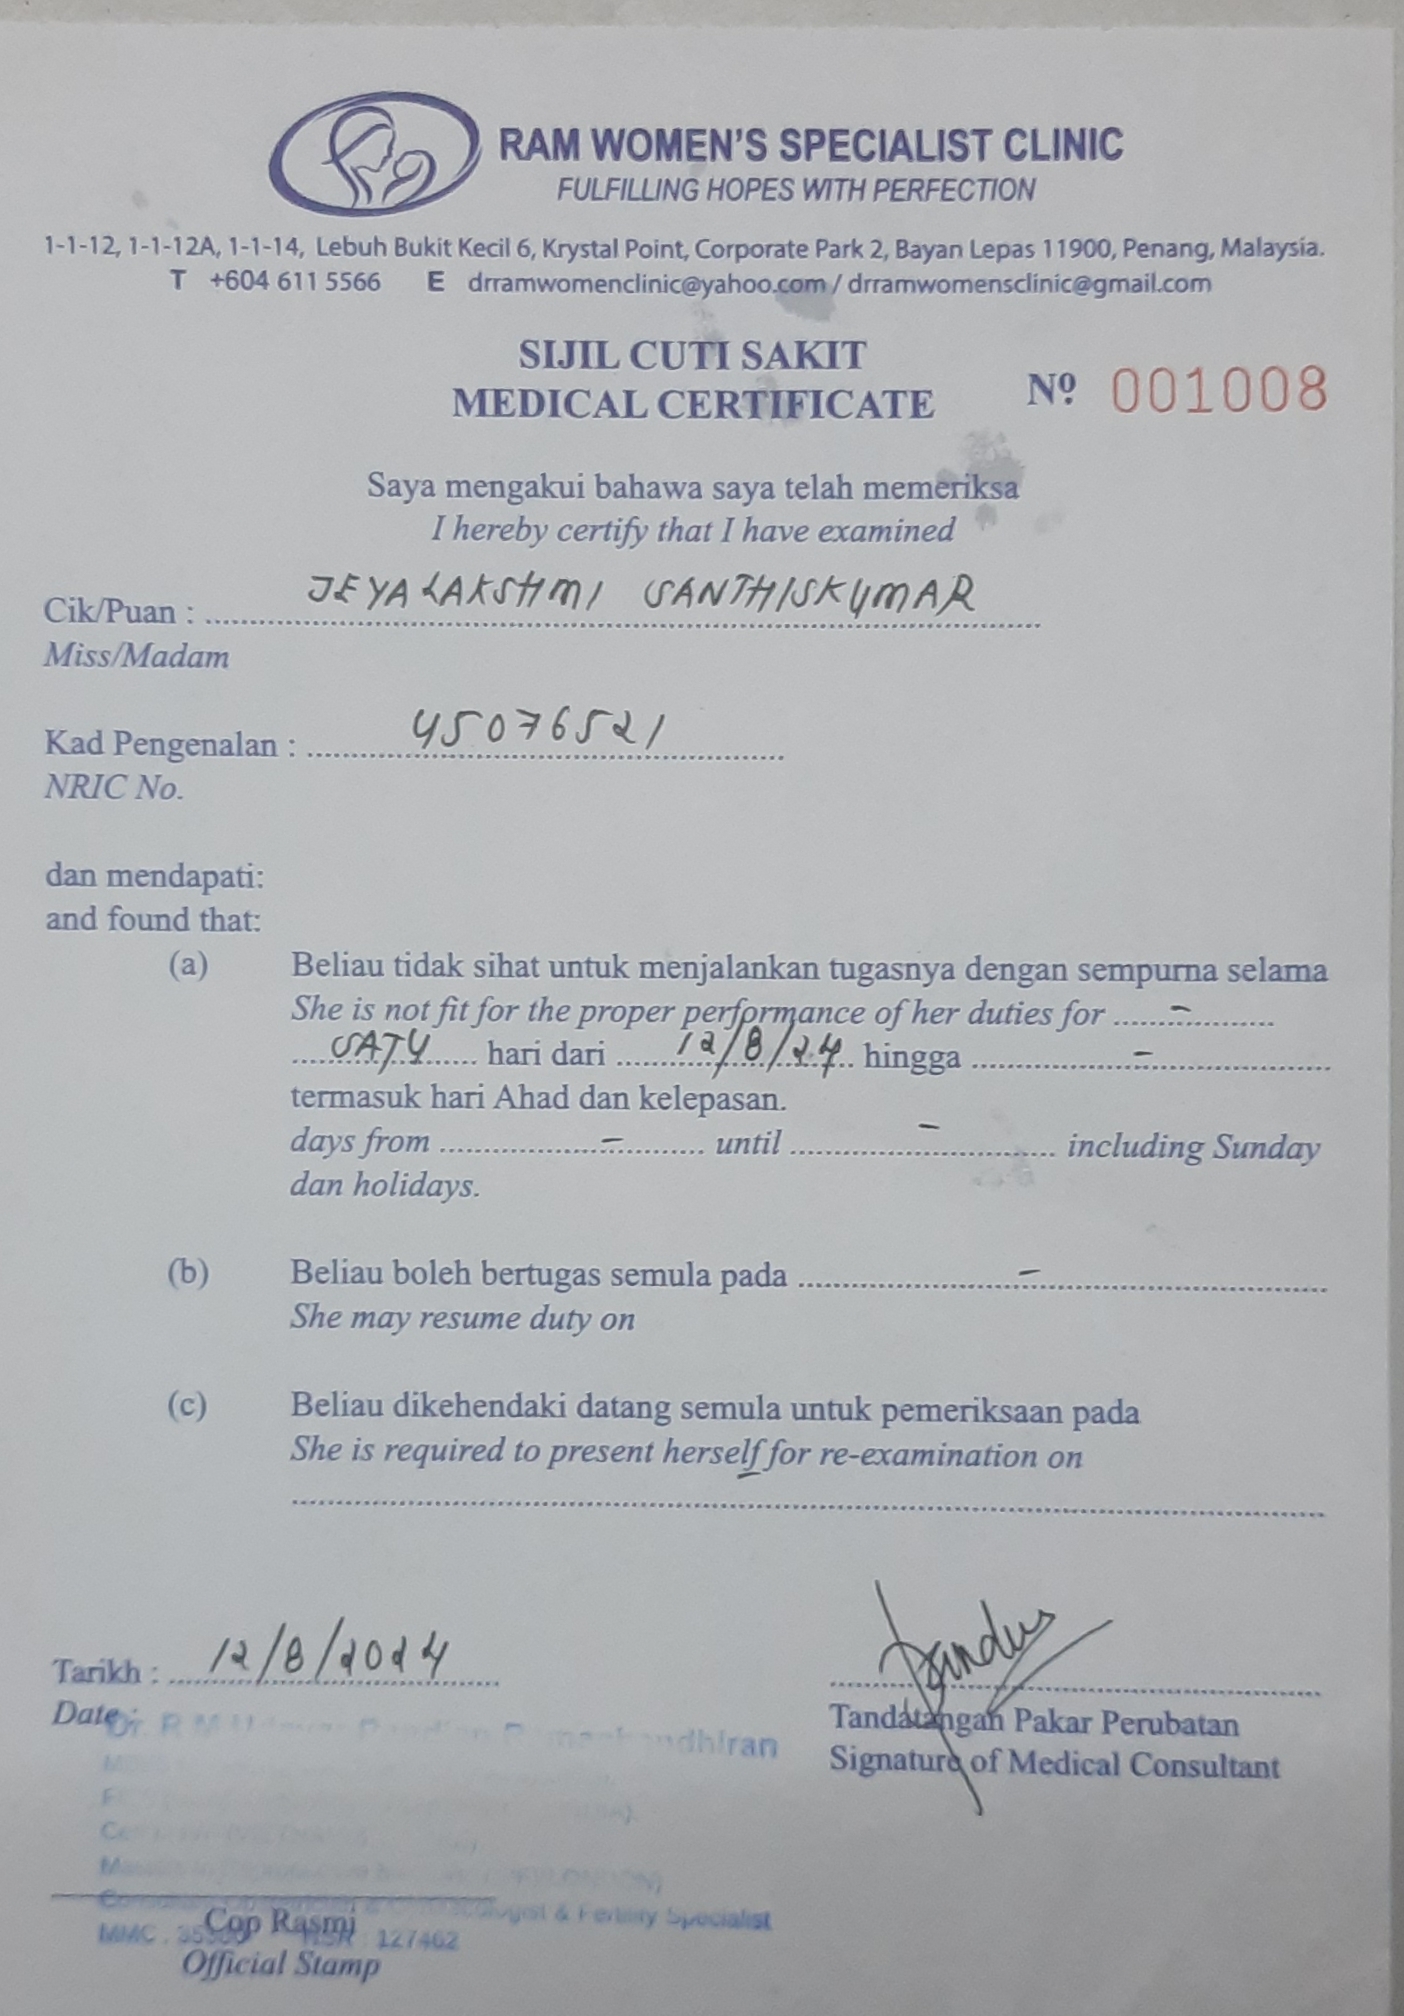 RAM WOMEN'S SPECIALIST CLINIC
FULFILLING HOPES WITH PERFECTION
1-1-12, 1-1-12A, 1-1-14, Lebuh Bukit Kecil 6, Krystal Point, Corporate Park 2, Bayan Lepas 11900, Penang, Malaysia.
T +604 611 5566 E drramwomenclinic@yahoo.com / drramwomensclinic@gmail.com
SIJIL CUTI SAKIT
MEDICAL CERTIFICATE
Nº 001008
Saya mengakui bahawa saya telah memeriksa
I hereby certify that I have examined
Cik/Puan : JEYALAKSHMI SANTHISKUMAR
Miss/Madam
Kad Pengenalan : 45076521
NRIC No.
dan mendapati:
and found that:
(a) Beliau tidak sihat untuk menjalankan tugasnya dengan sempurna selama
She is not fit for the proper performance of her duties for -
SATU hari dari 12/8/24 hingga -
termasuk hari Ahad dan kelepasan.
days from - until - including Sunday
dan holidays.
(b) Beliau boleh bertugas semula pada -
She may resume duty on
(c) Beliau dikehendaki datang semula untuk pemeriksaan pada
She is required to present herself for re-examination on
Tarikh : 12/8/2024
Date :
Tandatangan Pakar Perubatan
Signature of Medical Consultant
Dr. R.M
& Fertility Specialist
MMC : NSR : 127462
Cop Rasmi
Official Stamp